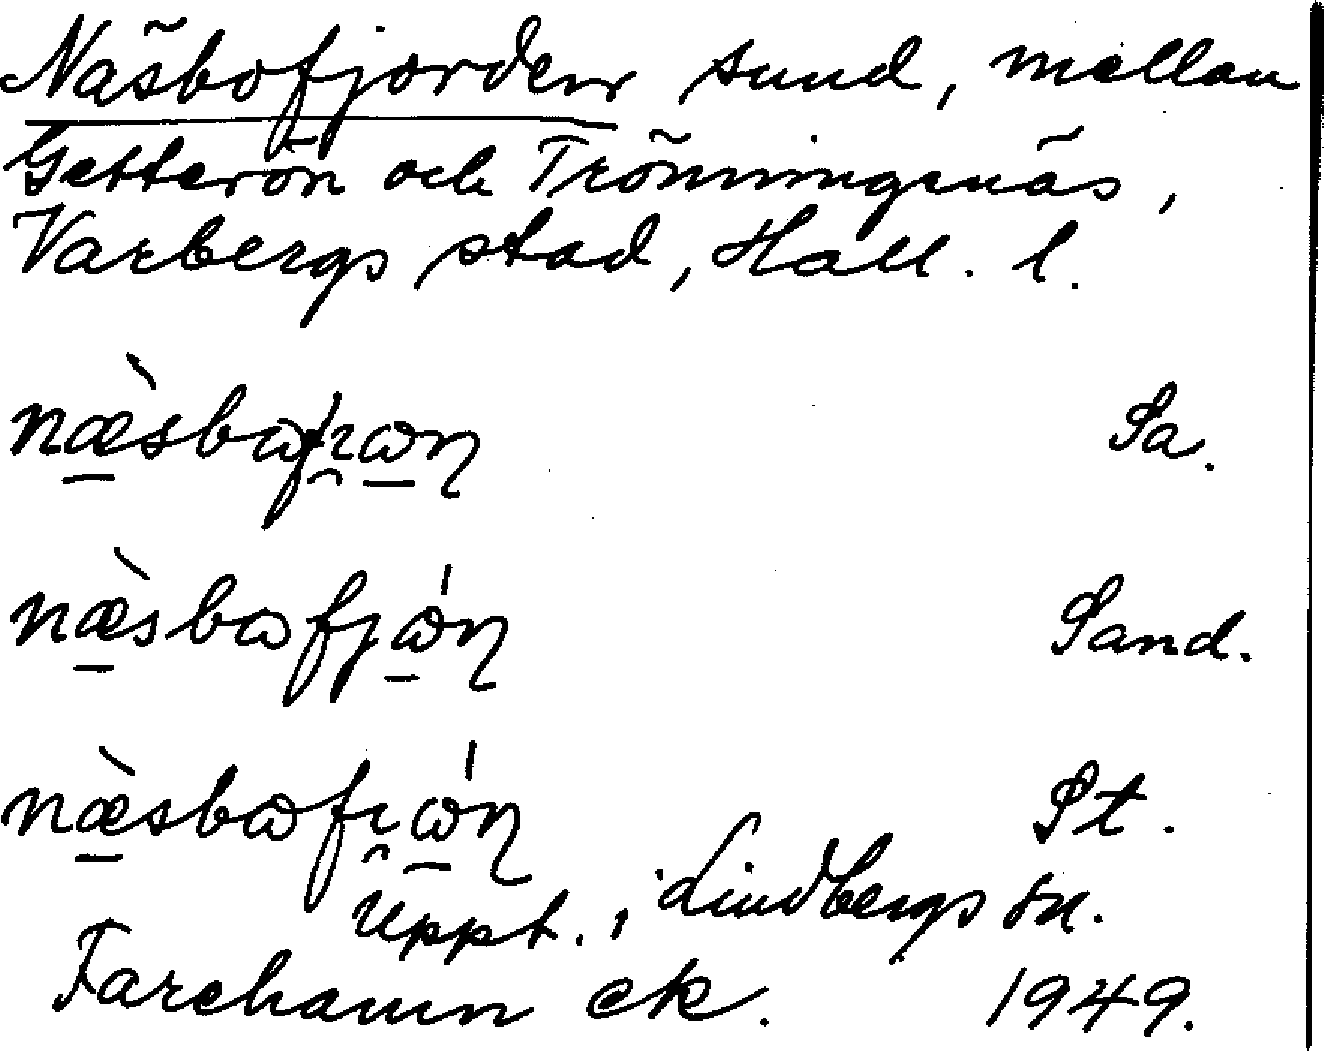 Näsbofjorden sund, mellan
Getterön och Trönningenäs,
Varbergs stad, Hall. l.
næ̀sbɷfı̯ɷɳ Sa.
næ̀sbɷfjɷ́ɳ Sand.
næ̀sbɷfı̯ɷ́ɳ St.
Uppt., Lindbergs sn.
Farehamn ek. 1949.